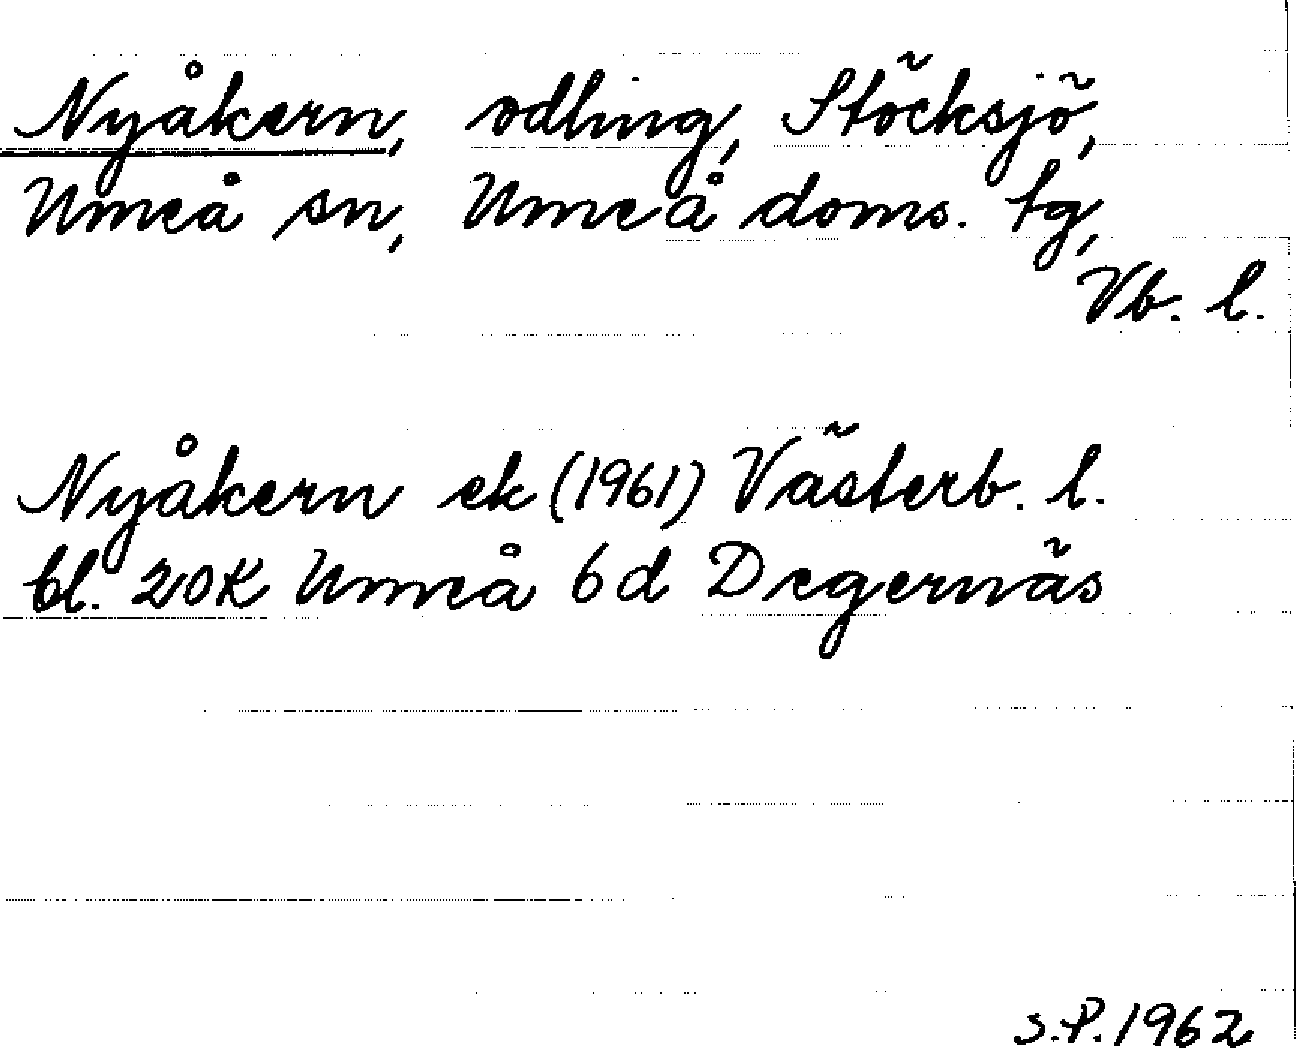 Nyåkern, odling, Stöcksjö,
Umeå sn, Umeå doms. tg,
Vb. l.
Nyåkern ek (1961) Västerb. l.
bl. 20K Umeå 6d Degernäs
S.P. 1962